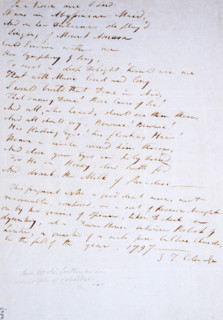 In a vision once I saw:
It was an Abyssinian Maid,
And on her Dulcimer she play'd
Singing of Mount Amara.
Could I revive within me
Her Symphony & Song,
To such a deep Delight 'twould win me,
That with Music loud and long
I would build that Dome in Air,
That sunny Dome! those Caves of Ice!
And all, who heard, should see them there,
And all should cry, Beware! Beware!
His flashing Eyes! his floating Hair!
Weave a circle round him thrice,
And close your Eyes in holy Dread:
For He on Honey-dew hath fed
And drank the Milk of Paradise.
This fragment with a good deal more, not
recoverable, composed, in a sort of Reverie brought
on by two grains of Opium, taken to check a
dysentery, at a Farm House between Porlock &
Linton, a quarter of a mile from Culbone Church,
in the fall of the year, 1797.
S. T. Coleridge